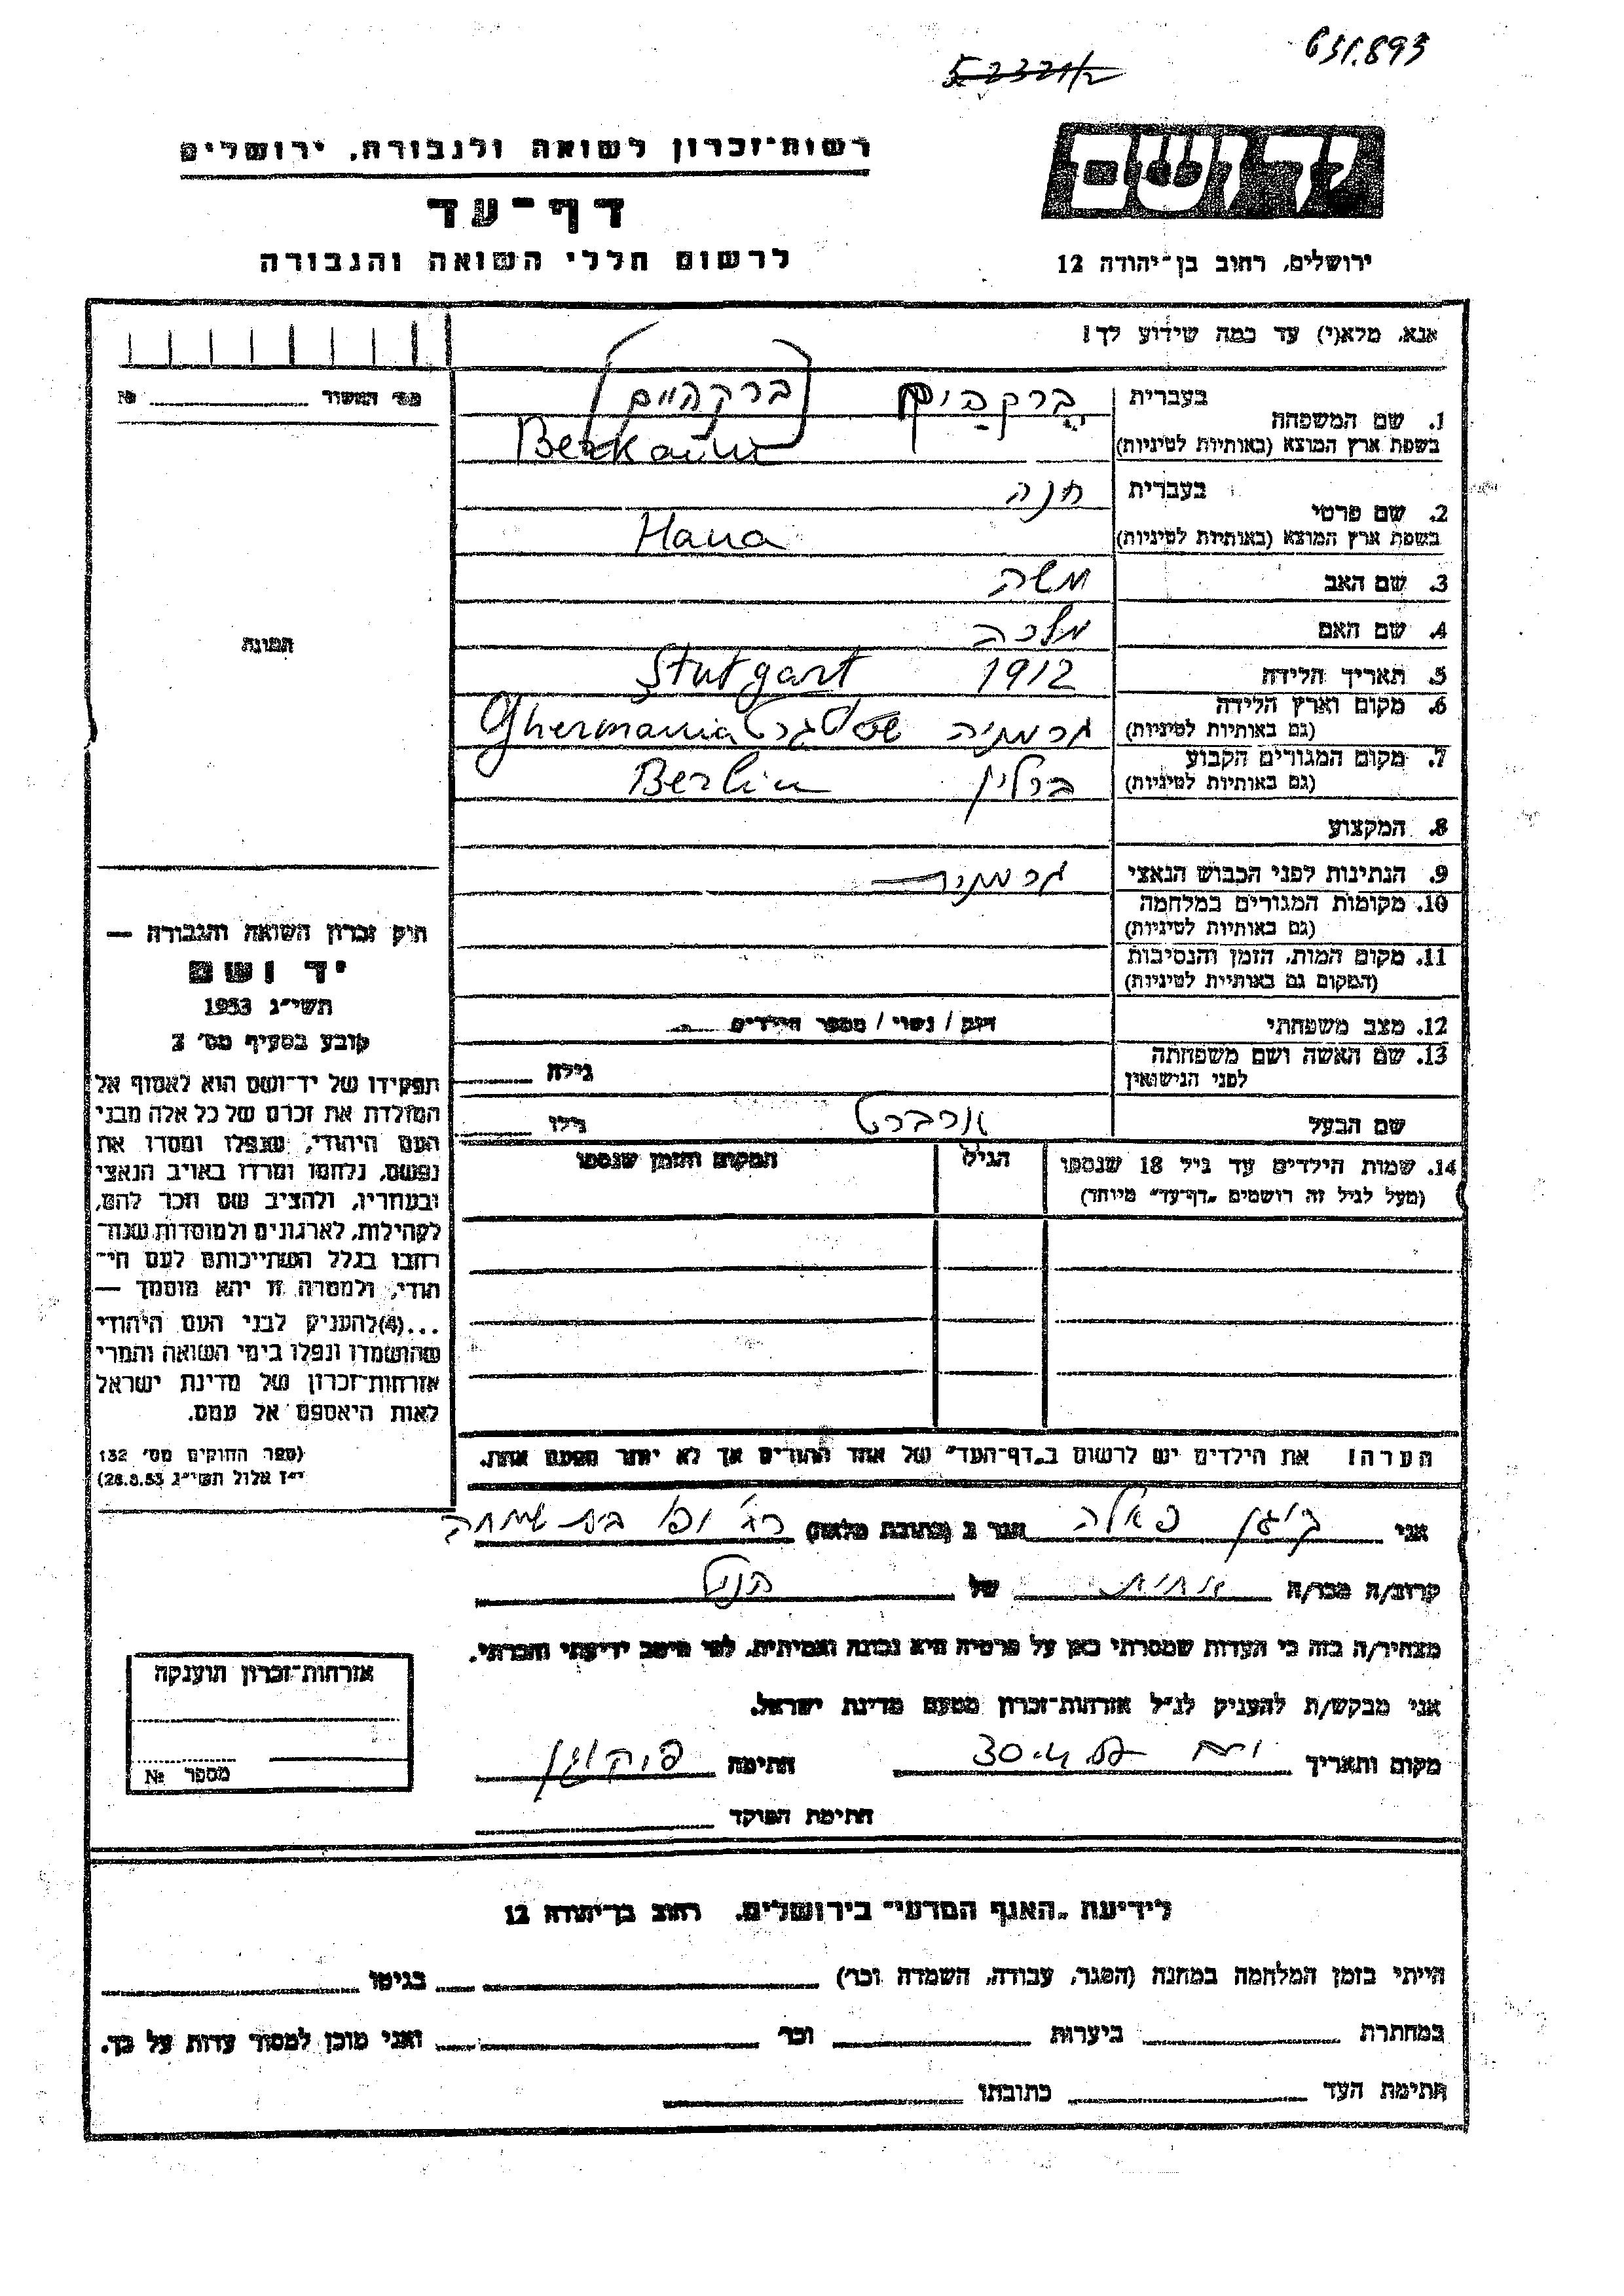 631.893
52321/2
רשות־זכרון לשואה ולגבורה, ירושלים
דף־עד
לרשום חללי השואה והגבורה
יד ושם
ירושלים, רחוב בן־יהודה 12
אנא, מלא(י) עד כמה שידוע לך!
מס' האשור № 
1. שם המשפחה בעברית ברקהים (ברקהיים)
בשפת ארץ המוצא (באותיות לטיניות) Berkaim
2. שם פרטי בעברית חנה
בשפת ארץ המוצא (באותיות לטיניות) Hana
3. שם האב משה
4. שם האם מלכה
5. תאריך הלידה 1912 Stutgart
6. מקום וארץ הלידה
(גם באותיות לטיניות) גרמניה שטוטגרט Ghermania
7. מקום המגורים הקבוע
(גם באותיות לטיניות) ברלין Berlin
8. המקצוע
9. הנתינות לפני הכבוש הנאצי גרמנית
10. מקומות המגורים במלחמה
(גם באותיות לטיניות)
11. מקום המות, הזמן והנסיבות
(המקום גם באותיות לטיניות)
12. מצב משפחתי רווק / נשוי / מספר הילדים
13. שם האשה ושם משפחתה גילה
לפני הנישואין
שם הבעל ארברט גילו
14. שמות הילדים עד גיל 18 שנספו הגיל המקום והזמן שנספו
(מעל לגיל זה רושמים "דף־עד" מיוחד)
התמונה
חוק זכרון השואה והגבורה —
יד ושם
תשי"ג 1953
קובע בסעיף מס' 2
תפקידו של יד־ושם הוא לאסוף אל
המולדת את זכרם של כל אלה מבני
העם היהודי, שנפלו ומסרו את
נפשם, נלחמו ומרדו באויב הנאצי
ובעוזריו, ולהציב שם וזכר להם,
לקהילות, לארגונים ולמוסדות שנח־
רבו בגלל השתייכותם לעם הי־
הודי, ולמטרה זו יהא מוסמך —
...(4)להעניק לבני העם היהודי
שהושמדו ונפלו בימי השואה והמרי
אזרחות־זכרון של מדינת ישראל
לאות היאספם אל עמם.
(ספר החוקים מס' 132
י"ז אלול תשי"ג 28.8.53)
הערה! את הילדים יש לרשום ב"דף־העד" של אחד ההורים אך לא יותר מפעם אחת.
אני פאלה הגר ב (כתובת מלאה)
קרוב/ה מכר/ה אחות של הנ"ל
מצהיר/ה בזה כי העדות שמסרתי כאן על פרטיה היא נכונה ואמיתית, לפי מיטב ידיעתי והכרתי.
אני מבקש/ת להעניק לנ"ל אזרחות־זכרון מטעם מדינת ישראל.
מקום ותאריך 30.4 חתימה
חתימת הפוקד
אזרחות־זכרון הוענקה
מספר №
לידיעת "האגף המדעי" בירושלים, רחוב בן־יהודה 12
הייתי בזמן המלחמה במחנה (הסגר, עבודה, השמדה וכו') בגיטו
במחתרת ביערות וכו' ואני מוכן למסור עדות על כך.
חתימת העד כתובתו